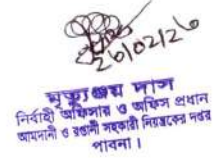 26/02/26
মৃত্যুঞ্জয় দাস
নির্বাহী অফিসার ও অফিস প্রধান
আমদানী ও রপ্তানী সহকারী নিয়ন্ত্রকের দপ্তর
পাবনা।